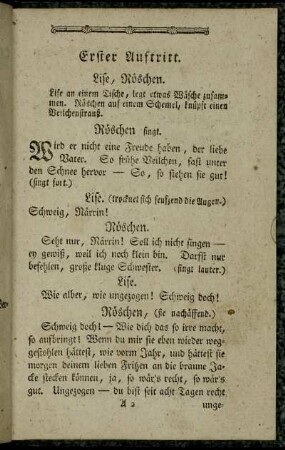 Erster Auftritt.
Lise, Röschen.
Lise an einem Tische, legt etwas Wäsche zusam-
men. Röschen auf einem Schemel, knüpft einen
Veilchenstrauß.
Röschen singt.
Wird er nicht eine Freude haben, der liebe
Vater. So frühe Veilchen, fast unter
den Schnee hervor — So, so stehen sie gut!
(singt fort.)
Lise. (trocknet sich seufzend die Augen.)
Schweig, Närrin!
Röschen.
Seht nur, Närrin! Soll ich nicht singen —
ey gewiß, weil ich noch klein bin. Darfst nur
befehlen, große kluge Schwester. (singt lauter.)
Lise.
Wie alber, wie ungezogen! Schweig doch!
Röschen, (sie nachäffend.)
Schweig doch! — Wie dich das so irre macht,
so aufbringt! Wenn du mir sie eben wieder weg-
gestohlen hättest, wie vorm Jahr, und hättest sie
morgen deinem lieben Fritzen an die braune Ja-
cke stecken können, ja, so wär's recht, so wär's
gut. Ungezogen — du bist seit acht Tagen recht
A 2 unge-